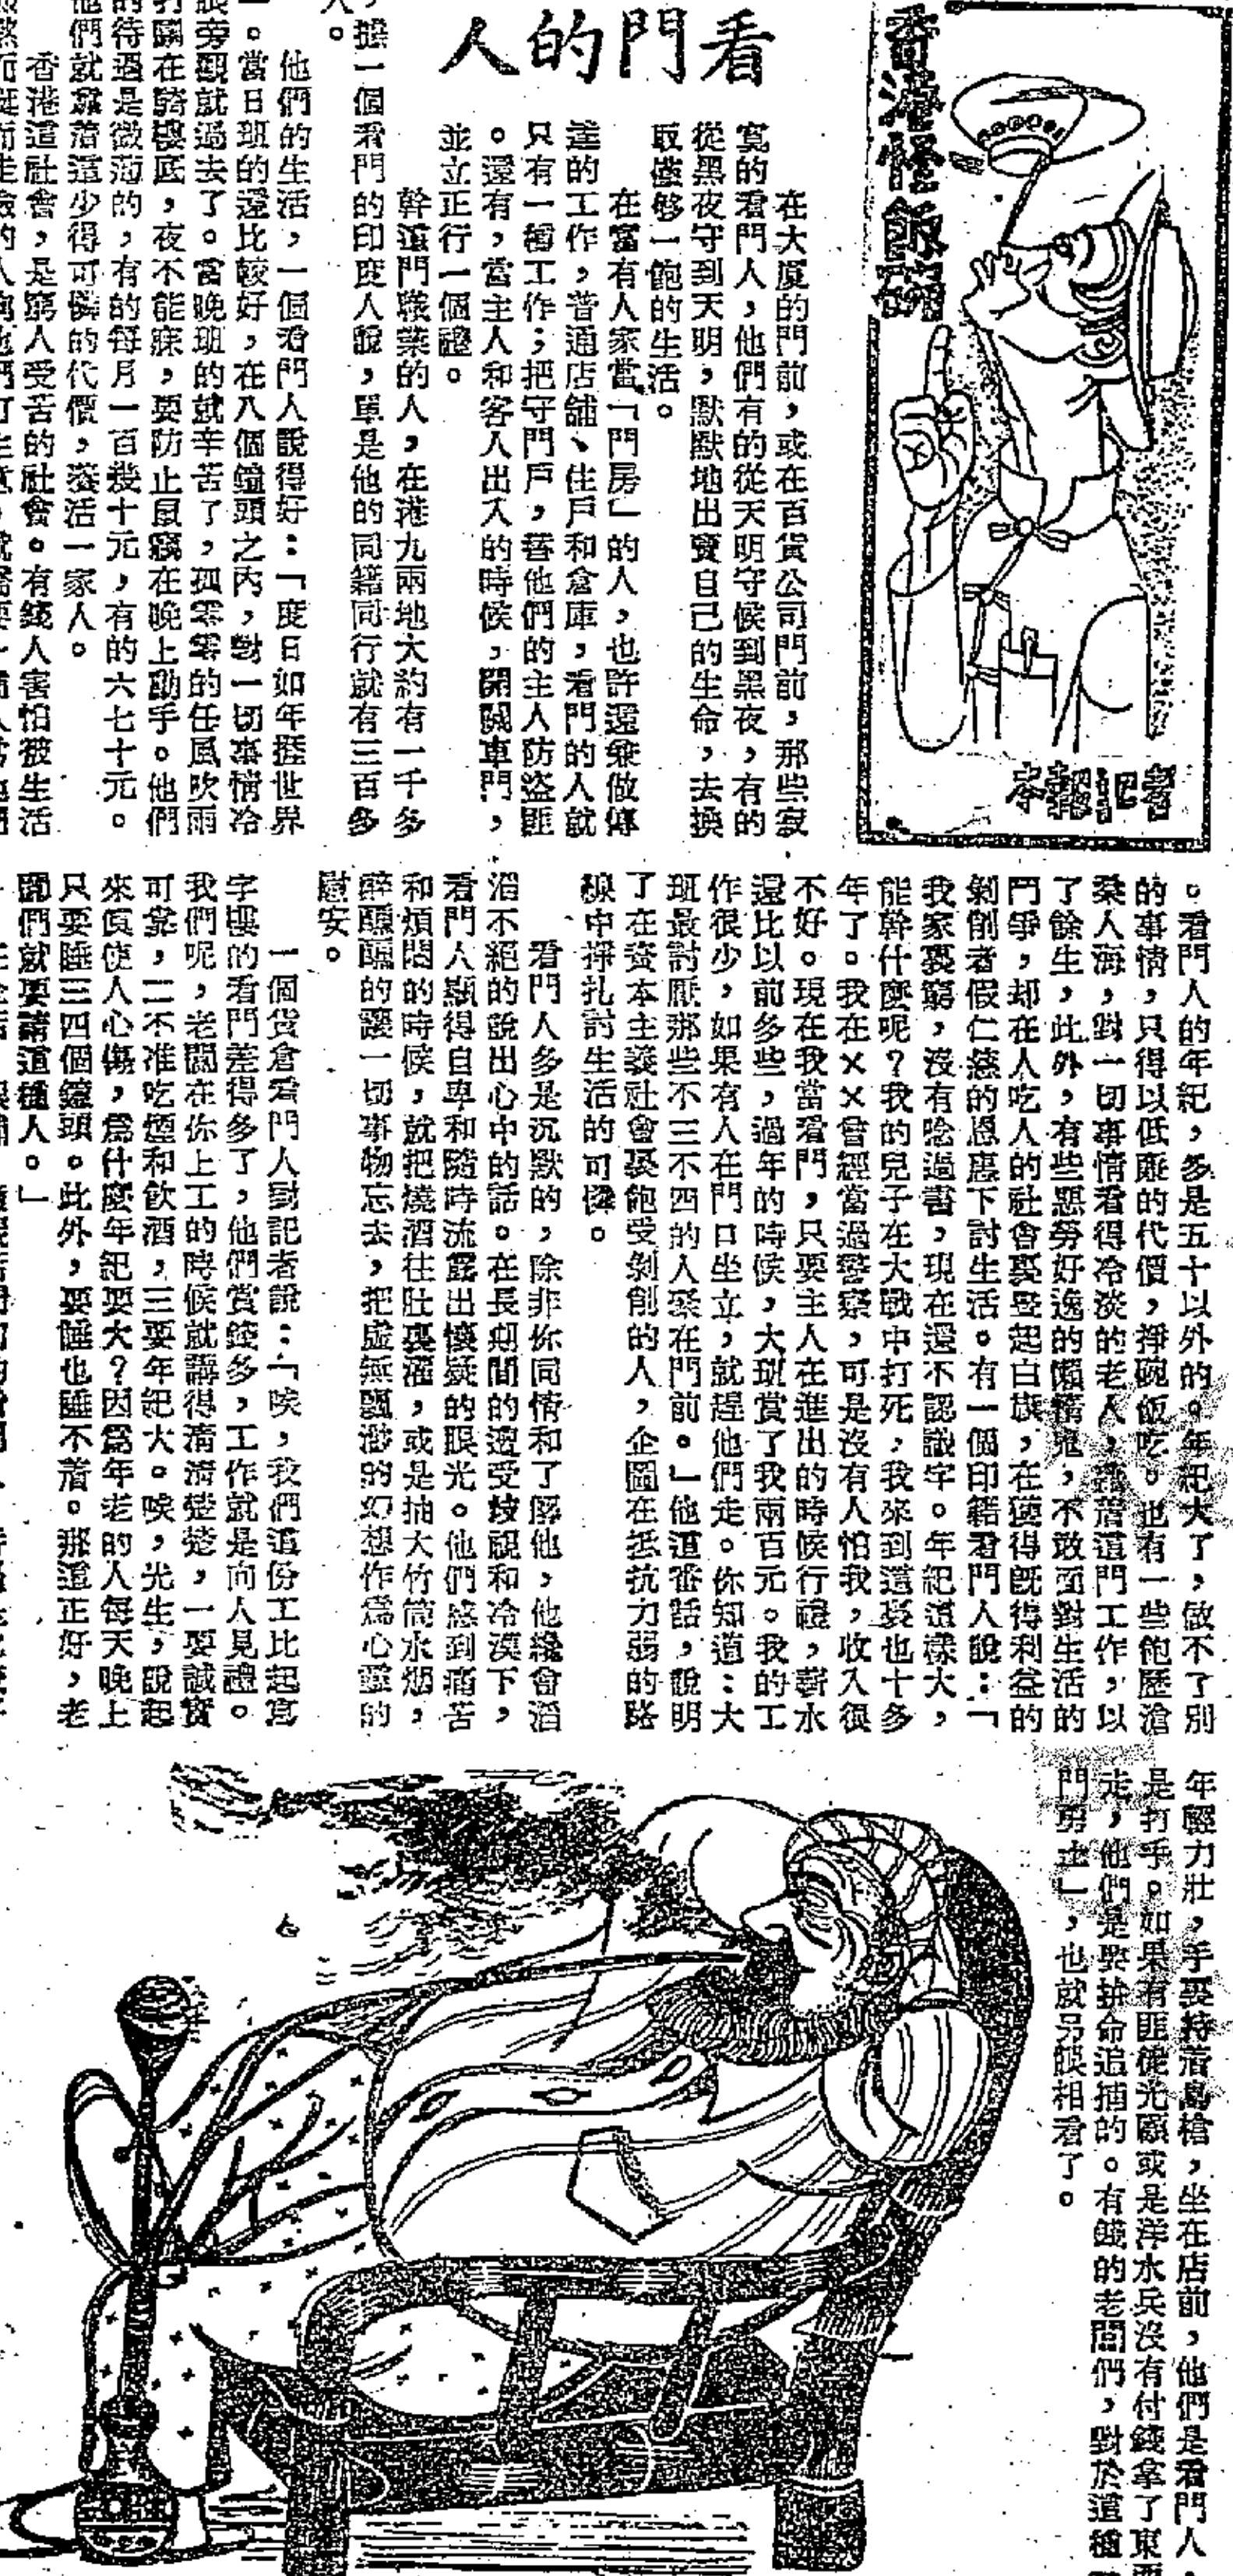 香港怪飯碗
本報記者
看門的人
在大廈的門前，或在百貨公司門前，那些寂
寞的看門人，他們有的從天明守候到黑夜，有的
從黑夜守到天明，默默地出賣自己的生命，去換
取僅够一飽的生活。
在富有人家當「門房」的人，也許還兼做傳
達的工作，普通店舖、住戶和倉庫，看門的人就
只有一種工作；把守門戶，替他們的主人防盜匪
。還有，當主人和客人出入的時候，開關車門，
並立正行一個禮。
幹這門職業的人，在港九兩地大約有一千多
，據一個看門的印度人說，單是他的同籍同行就有三百多
人。
他們的生活，一個看門人說得好：「度日如年捱世界
」。當日班的還比較好，在八個鐘頭之內，對一切事情冷
眼旁觀就過去了。當晚班的就辛苦了，孤零零的任風吹雨
打瞓在騎樓底，夜不能寐，要防止鼠竊在晚上動手。他們
的待遇是微薄的，有的每月一百幾十元，有的六七十元。
他們就靠着這少得可憐的代價，養活一家人。
香港這社會，是窮人受苦的社會。有錢人害怕被生活
而挺而走險的人
。看門人的年紀，多是五十以外的。年紀大了，做不了別
的事情，只得以低廉的代價，掙碗飯吃。也有一些飽歷滄
桑人海，對一切事情看得冷淡的老人，靠着這門工作，以
了餘生，此外，有些惡勞好逸的懶惰鬼，不敢面對生活的
鬥爭，却在人吃人的社會裏豎起白旗，在獲得旣得利益的
剝削者假仁慈的恩惠下討生活。有一個印籍看門人說：「
我家裏窮，沒有唸過書，現在還不認識字。年紀這樣大，
能幹什麼呢？我的兒子在大戰中打死，我來到這裏也十多
年了。我在××曾經當過警察，可是沒有人怕我，收入很
不好。現在我當看門，只要主人在進出的時候行禮，薪水
還比以前多些，過年的時候，大班賞了我兩百元。我的工
作很少，如果有人在門口坐立，就趕他們走。你知道：大
班最討厭那些不三不四的人來在門前。」他這番話，說明
了在資本主義社會裏飽受剝削的人，企圖在抵抗力弱的路
線中掙扎討生活的可憐。
看門人多是沉默的，除非你同情和了解他，他纔會滔
滔不絕的說出心中的話。在長期間的遭受歧視和冷漠下，
看門人顯得自卑和隨時流露出懷疑的眼光。他們感到痛苦
和煩悶的時候，就把燒酒往肚裏灌，或是抽大竹筒水烟，
醉醺醺的讓一切事物忘去，把虛無飄渺的幻想作爲心靈的
慰安。
一個貨倉看門人對記者說：「唉，我們這份工比起寫
字樓的看門差得多了，他們賞錢多，工作就是向人見禮。
我們呢，老闆在你上工的時候就講得清清楚楚，一要誠實
可靠，二不准吃煙和飲酒，三要年紀大。唉，先生，說起
來眞使人心傷，爲什麼年紀要大？因爲年老的人每天晚上
只要睡三四個鐘頭。此外，要睡也睡不着。那這正好，老
闆們就要請這種人。」
年輕力壯，手裏持着鳥槍，坐在店前，他們是看門人
是打手。如果有匪徒光顧或是洋水兵沒有付錢拿了東西
走，他們是要拚命追捕的。有錢的老闆們，對於這種「
門勇士」，也就另眼相看了。